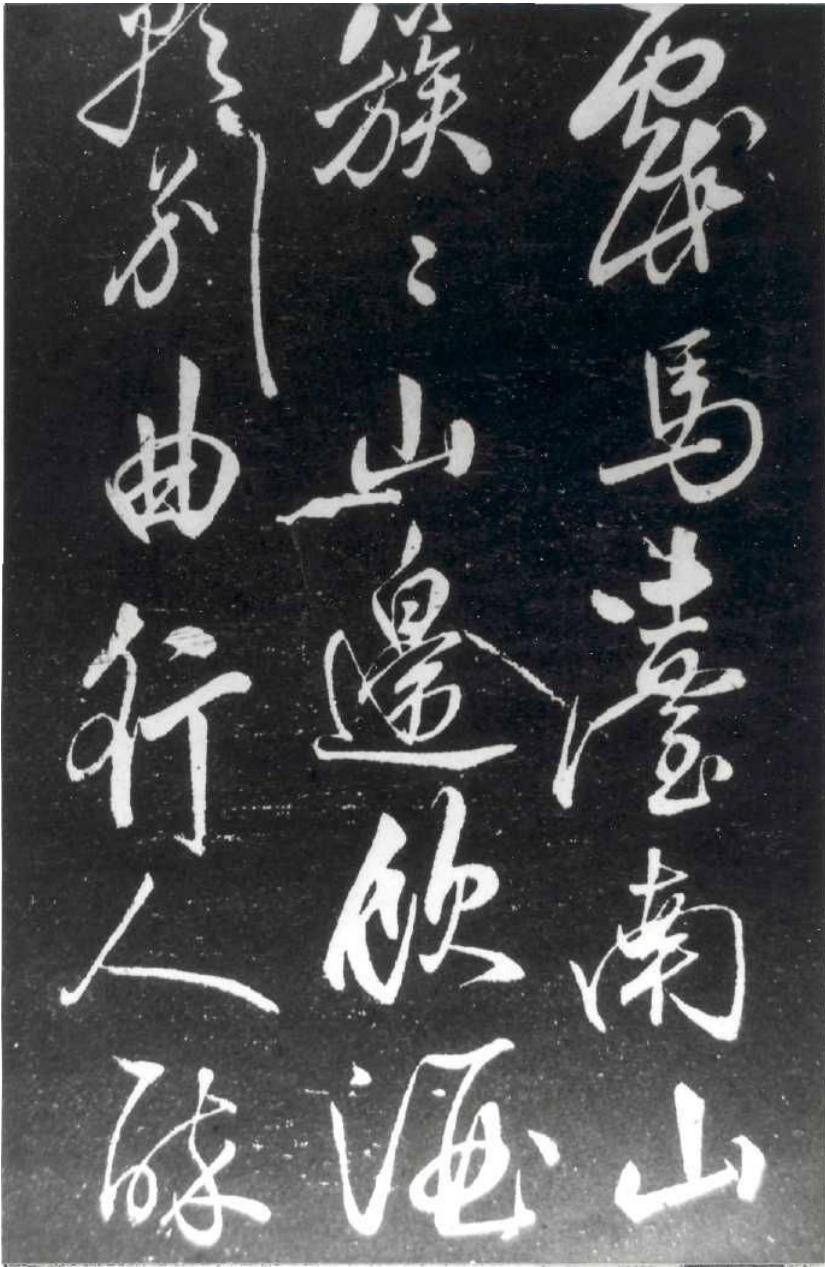 戲馬臺南山
簇〻山邊飲酒
歌別曲行人醉